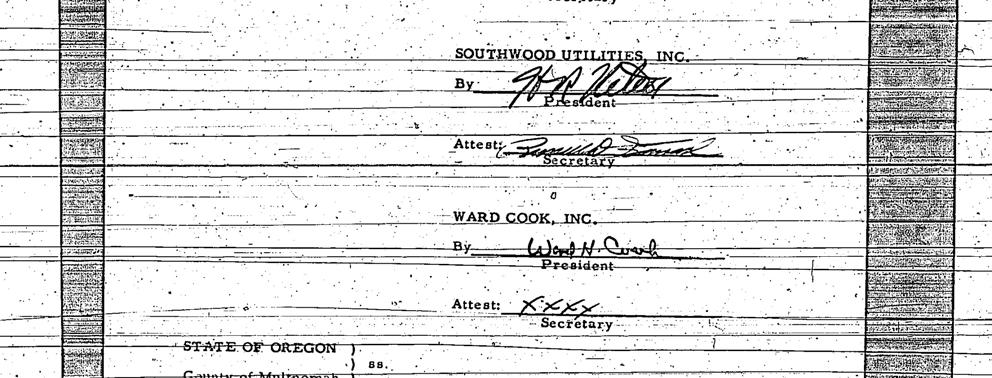 SOUTHWOOD UTILITIES, INC.
By
President
Attest:
Secretary
WARD COOK, INC.
By Ward H. Cook
President
Attest: XXXX
Secretary
STATE OF OREGON )
) ss.
County of Multnomah )